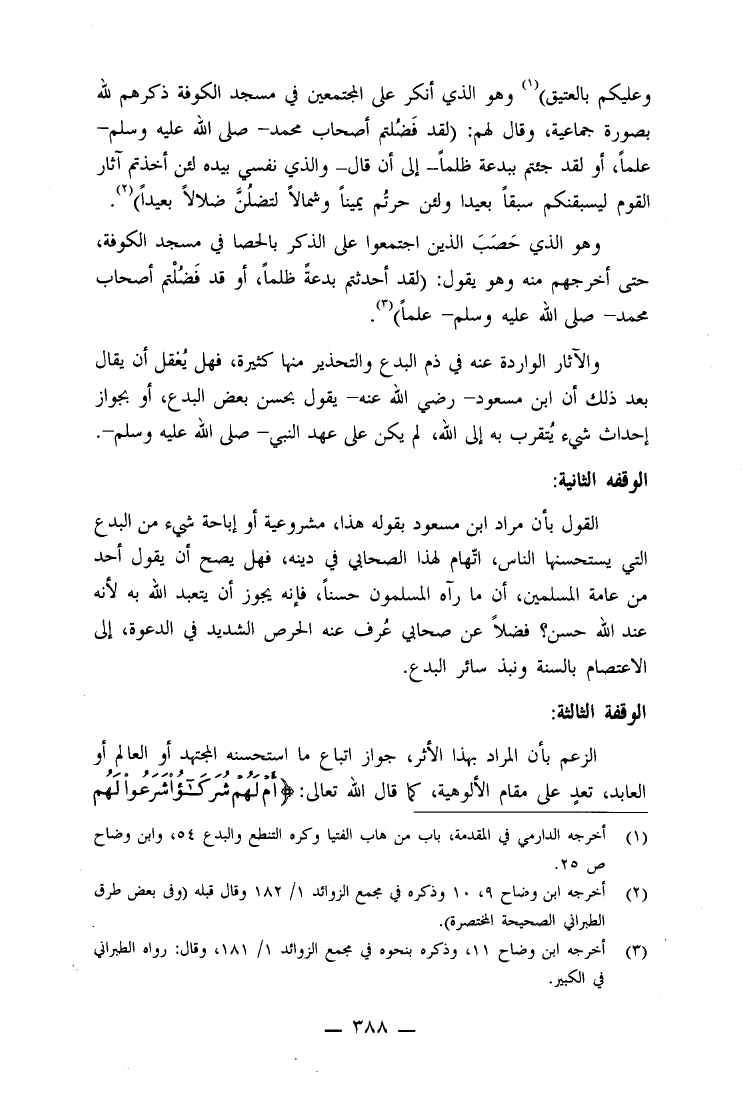 وعليكم بالعتيق)(١) وهو الذي أنكر على المجتمعين في مسجد الكوفة ذكرهم لله
بصورة جماعية، وقال لهم: (لقد فَضَلتم أصحاب محمد– صلى الله عليه وسلم–
علماً، أو لقد جئتم ببدعة ظلماً– إلى أن قال– والذي نفسي بيده لئن أخذتم آثار
القوم ليسبقنكم سبقاً بعيدا ولئن حرتُم يميناً وشمالاً لتضلُنَّ ضلالاً بعيداً)(٢).
وهو الذي حَصَبَ الذين اجتمعوا على الذكر بالحصا في مسجد الكوفة،
حتى أخرجهم منه وهو يقول: (لقد أحدثتم بدعةً ظلماً، أو قد فَضُلْتم أصحاب
محمد– صلى الله عليه وسلم– علماً)(٣).
والآثار الواردة عنه في ذم البدع والتحذير منها كثيرة، فهل يُعقل أن يقال
بعد ذلك أن ابن مسعود– رضي الله عنه– يقول بحسن بعض البدع، أو بجواز
إحداث شيء يُتقرب به إلى الله، لم يكن على عهد النبي– صلى الله عليه وسلم–.
الوقفه الثانية:
القول بأن مراد ابن مسعود بقوله هذا، مشروعية أو إباحة شيء من البدع
التي يستحسنها الناس، اتّهام لهذا الصحابي في دينه، فهل يصح أن يقول أحد
من عامة المسلمين، أن ما رآه المسلمون حسناً، فإنه يجوز أن يتعبد الله به لأنه
عند الله حسن؟ فضلاً عن صحابي عُرف عنه الحرص الشديد في الدعوة، إلى
الاعتصام بالسنة ونبذ سائر البدع.
الوقفة الثالثة:
الزعم بأن المراد بهذا الأثر، جواز اتباع ما استحسنه المجتهد أو العالم أو
العابد، تعدٍ على مقام الألوهية، كما قال الله تعالى: ﴿أَمْ لَهُمْ شُرَكَٰٓؤُا۟ شَرَعُوا۟ لَهُم
(١) أخرجه الدارمي في المقدمة، باب من هاب الفتيا وكره التنطع والبدع ٥٤، وابن وضاح
ص ٢٥.
(٢) أخرجه ابن وضاح ٩، ١٠ وذكره في مجمع الزوائد ١/ ١٨٢ وقال قبله (وفى بعض طرق
الطبراني الصحيحة المختصرة).
(٣) أخرجه ابن وضاح ١١، وذكره بنحوه في مجمع الزوائد ١/ ١٨١، وقال: رواه الطبراني
في الكبير.
— ٣٨٨ —